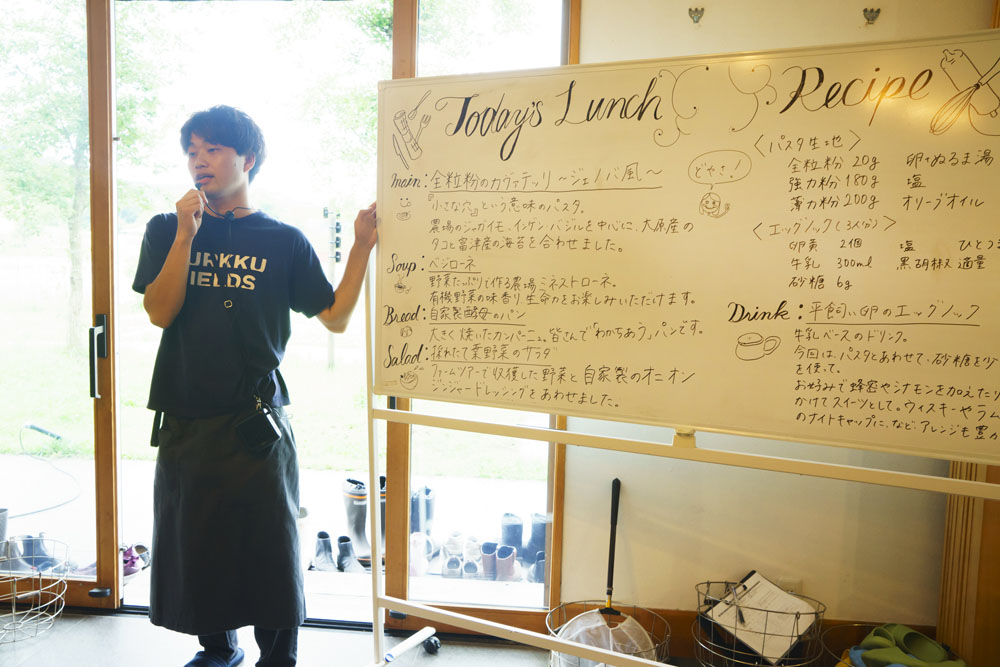 URKKU
IELDS
Today's Lunch
main: 全粒粉のカヴァテッリ 〜ジェノバ風〜
『小さな穴』という意味のパスタ。
農場のジャガイモ、インゲン、バジルを中心に、大原産の
タコと富津産の海苔を合わせました。
Soup: ベジローネ
野菜たっぷりで作る農場ミネストローネ。
有機野菜の味、香り、生命力をお楽しみいただけます。
Bread: 自家製酵母のパン
大きく焼いたカンパーニュ。皆さんで「わかちあう」パンです。
Salad: 採れたて葉野菜のサラダ
ファームツアーで収穫した野菜と自家製のオニオン
ジンジャードレッシングをあわせました。
どやさ!
Recipe
〈パスタ生地〉
全粒粉 20g 卵+ぬるま湯
強力粉 180g 塩
薄力粉 200g オリーブオイル
〈エッグノッグ(3人分)〉
卵黄 2個 塩 ひとつ
牛乳 300ml 黒胡椒 適量
砂糖 6g
Drink: 平飼い卵のエッグノッグ
牛乳ベースのドリンク。
今回は、パスタとあわせて、砂糖を少
を使って、
お好みで蜂蜜やシナモンを加えたり
かけてスイーツとして。ウィスキーやラム
のナイトキャップに、など、アレンジも豊か